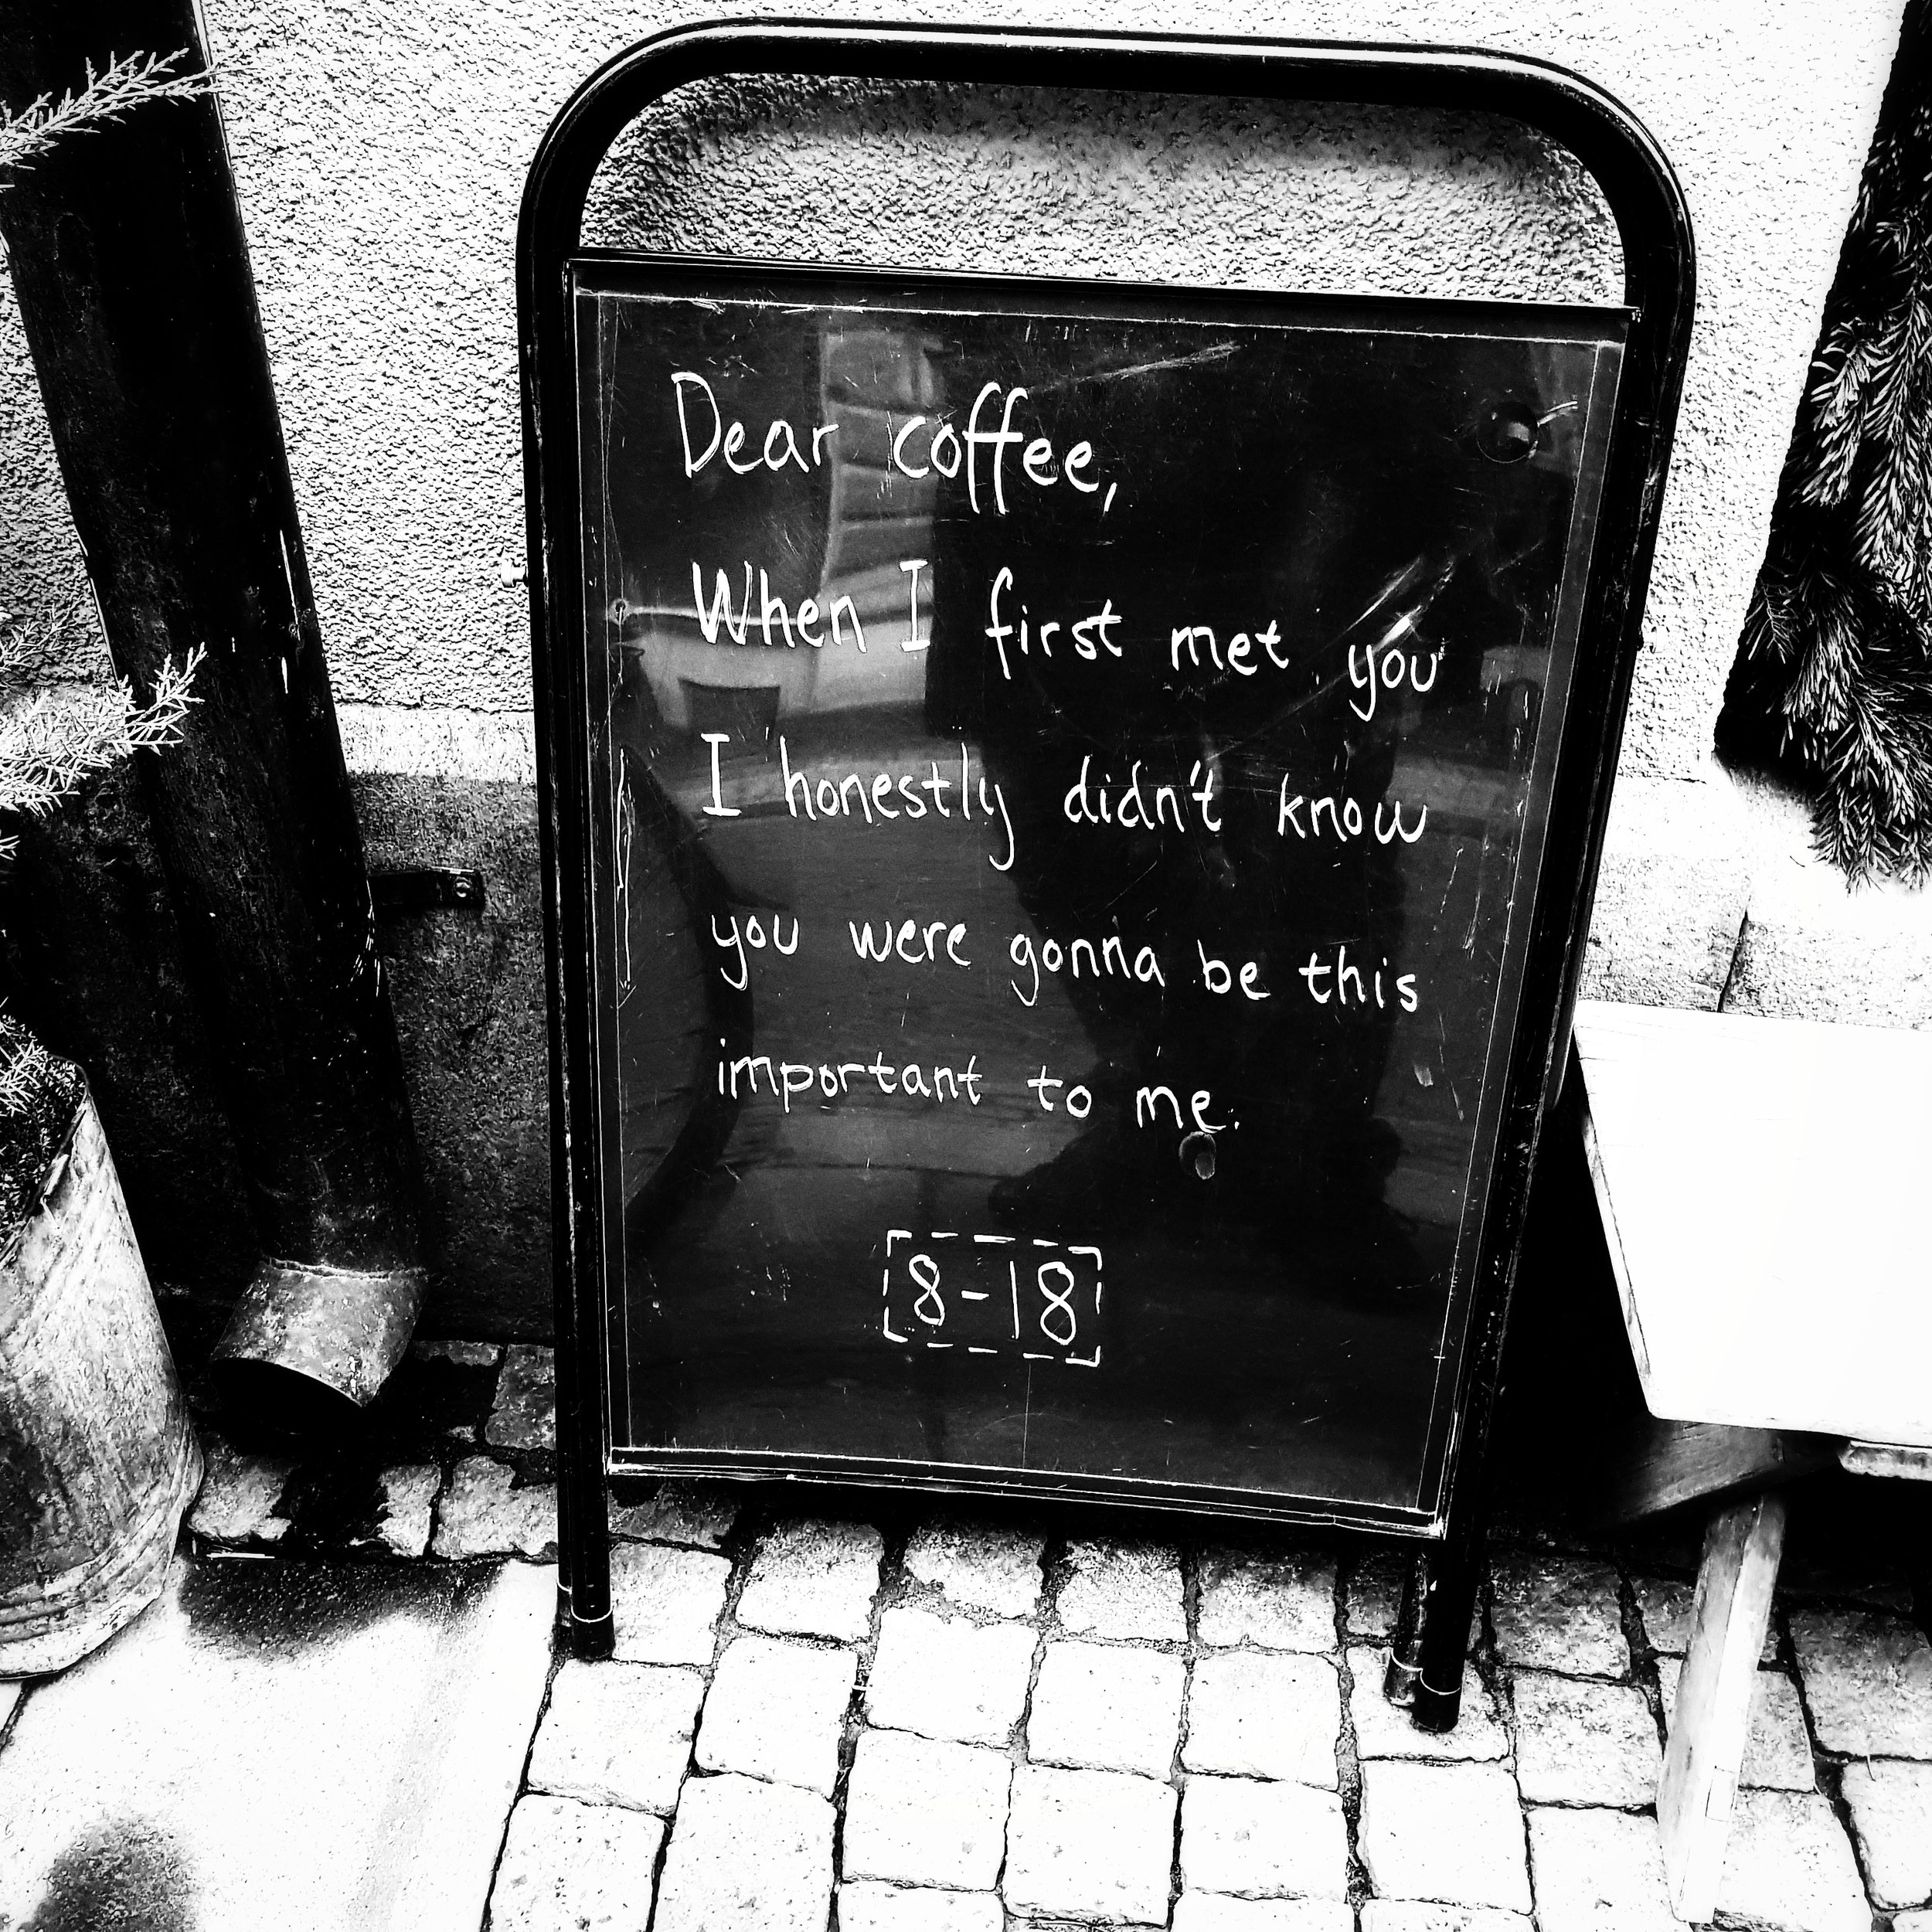 Dear coffee,
When I first met you
I honestly didn't know
you were gonna be this
important to me.
8-18